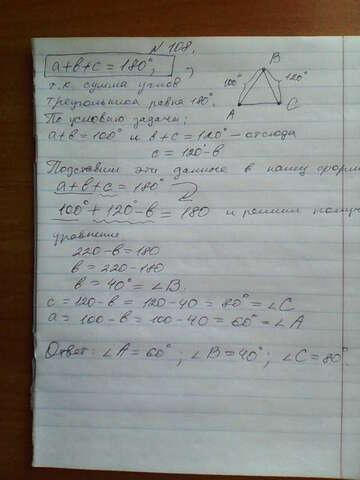 N 108.
a+b+c = 180°,
т.к. сумма углов
треугольника равна 180°.
B
100°
120°
A
C
По условию задачи:
a+b=100° и b+c=120° – отсюда
c = 120°-b
Подставим эти данные в нашу форм
a+b+c = 180°
100°+120°-b = 180 и решим получ
уравнение
220-b=180
b = 220-180
b = 40° = ∠B.
c = 120-b = 120-40 = 80° = ∠C
a = 100-b = 100-40 = 60° = ∠A
Ответ: ∠A=60° ; ∠B=40° ; ∠C=80°.